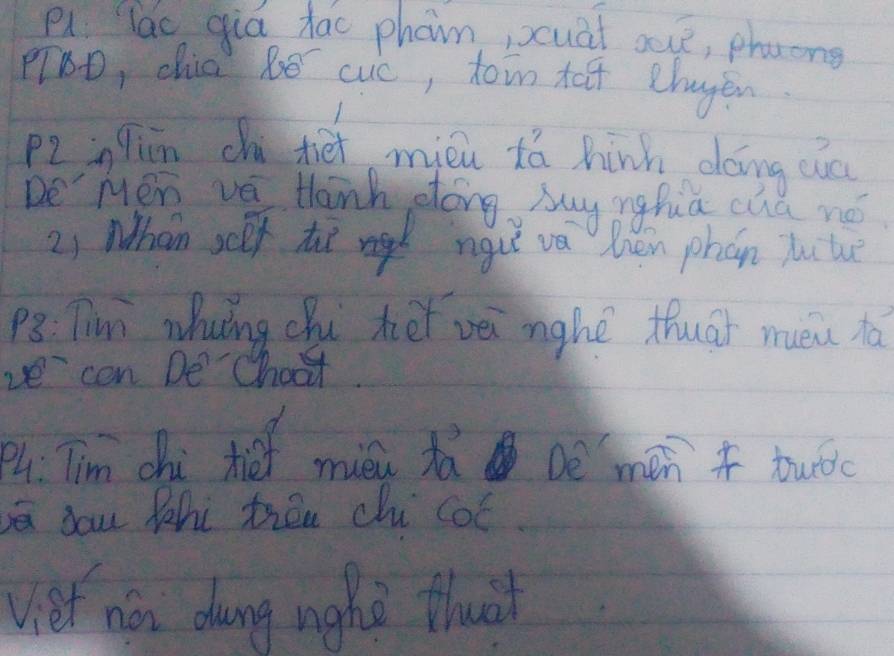 P1: Tác giả tác phẩm, xuất xứ, phương
PTBĐ, chia bố cục, tóm tắt chuyện.
P2 1) Tìm chi tiết miêu tả hình dáng của
Dế Mèn và Hành động suy nghĩa của nó
2) Nhận xét từ ngữ và biện pháp tu từ
P3: Tìm những chi tiết về nghệ thuật miêu tả
về con Dế Choắt.
P4: Tìm chi tiết miêu tả Dế mèn trước
và sau khi trêu chị Cốc.
Viết nội dung nghệ thuật.